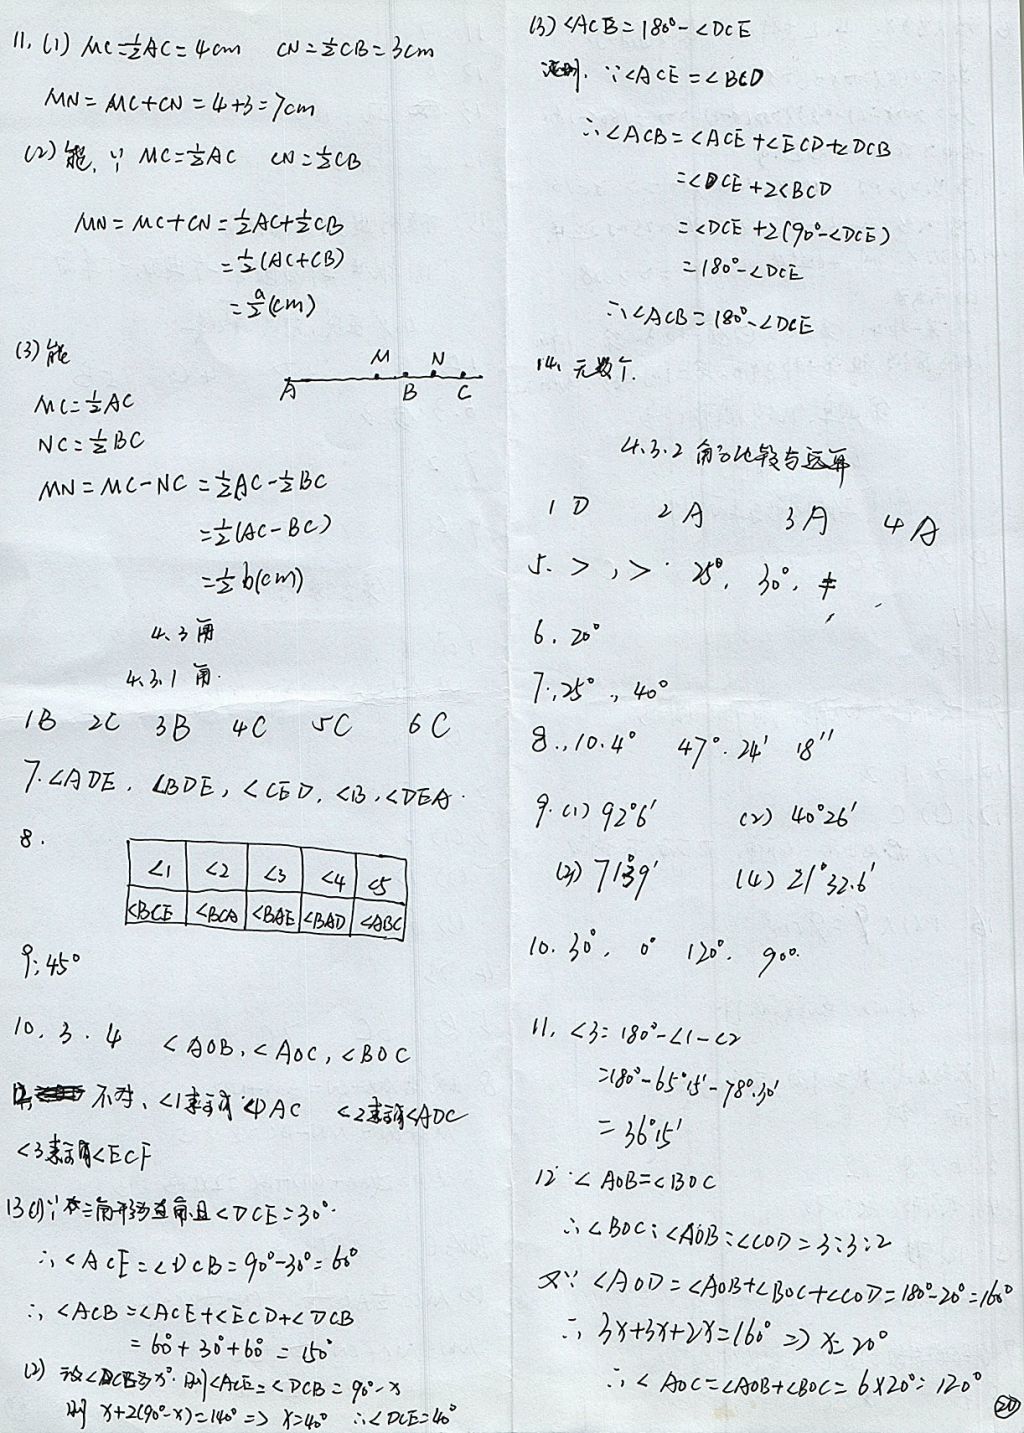 11. (1) MC=½AC=4cm CN=½CB=3cm
MN=MC+CN=4+3=7cm
(2) 能, ∵ MC=½AC CN=½CB
MN=MC+CN=½AC+½CB
=½(AC+CB)
=a/2(cm)
(3) 能
M N
A B C
MC=½AC
NC=½BC
MN=MC-NC=½AC-½BC
=½(AC-BC)
=½b(cm)
4.3 角
4.3.1 角.
1B 2C 3B 4C 5C 6C
7. ∠ADE, ∠BDE, ∠CED, ∠B, ∠DEA.
8.
∠1 ∠2 ∠3 ∠4 ∠5
∠BCE ∠BCA ∠BAE ∠BAD ∠ABC
9. 45°
10. 3. 4 ∠AOB, ∠AOC, ∠BOC
12, 不对、∠1表示为∠DAC ∠2表示为∠ADC
∠3表示为∠ECF
13(1)∵ 三角形为直角且∠DCE=30°.
∴∠ACE=∠DCB=90°-30°=60°
∴∠ACB=∠ACE+∠ECD+∠DCB
=60°+30°+60°=150°
(2) 设∠DCE为x°. 则∠ACE=∠DCB=90°-x
则 x+2(90°-x)=140° => x=40° ∴∠DCE=40°
(3) ∠ACB=180°-∠DCE
∵∠ACE=∠BCD
∴∠ACB=∠ACE+∠ECD+∠DCB
=∠DCE+2∠BCD
=∠DCE+2(90°-∠DCE)
=180°-∠DCE
∴∠ACB=180°-∠DCE
14. 无数个.
4.3.2 角的比较与运算
1 D 2 A 3 A 4 A
5. >, >. 25°, 30°,
6. 20°
7. 25°, 40°
8. 10.4° 47°. 24′ 18″
9. (1) 92°6′ (2) 40°26′
(3) 71°39′ (4) 21°32.6′
10. 30°, 0° 120°, 90°.
11. ∠3=180°-∠1-∠2
=180°-65°15′-78°30′
=36°15′
12 ∵∠AOB=∠BOC
∴∠BOC:∠AOB:∠COD=3:3:2
又∵ ∠AOD=∠AOB+∠BOC+∠COD=180°-20°=160°
∴ 3x+3x+2x=160° => x=20°
∴∠AOC=∠AOB+∠BOC=6×20°=120°
20